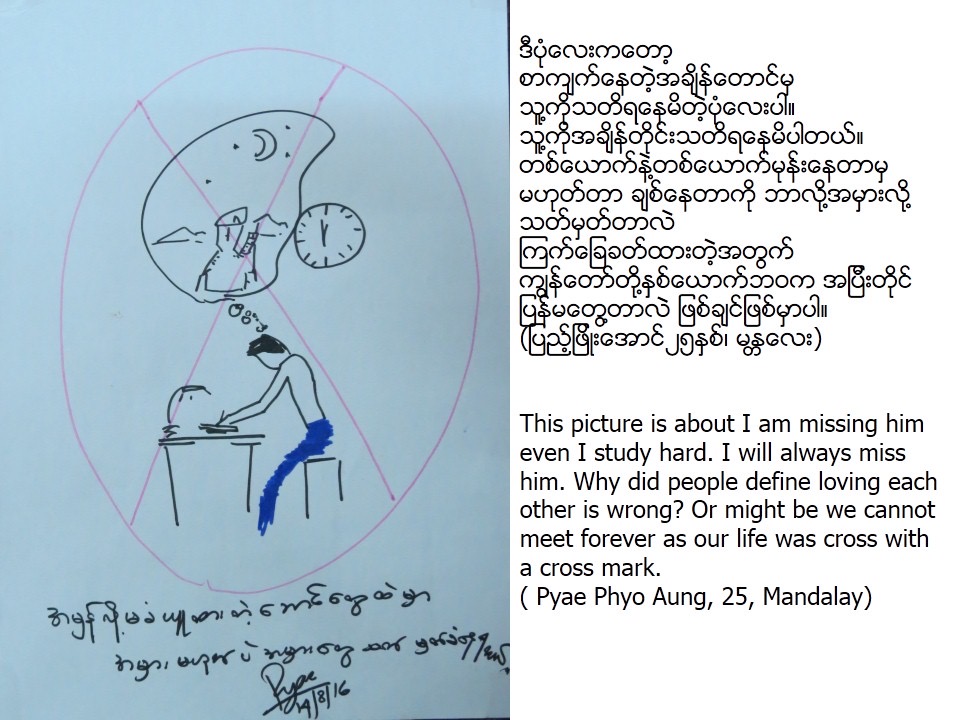 အမှန်လို့ မခံယူထားတဲ့ ဘောင်တွေထဲမှာ
အမှား မဟုတ်ပဲ အမှားတွေ
14/8/16
ဒီပုံလေးကတော့
စာကျက်နေတဲ့အချိန်တောင်မှ
သူ့ကိုသတိရနေမိတဲ့ပုံလေးပါ။
သူ့ကိုအချိန်တိုင်းသတိရနေမိပါတယ်။
တစ်ယောက်နဲ့တစ်ယောက်မုန်းနေတာမှ
မဟုတ်တာ ချစ်နေတာကို ဘာလို့အမှားလို့
သတ်မှတ်တာလဲ
ကြက်ခြေခတ်ထားတဲ့အတွက်
ကျွန်တော်တို့နှစ်ယောက်ဘဝက အပြီးတိုင်
ပြန်မတွေ့တာလဲ ဖြစ်ချင်ဖြစ်မှာပါ။
(ပြည့်ဖြိုးအောင်၂၅နှစ်၊ မန္တလေး)
This picture is about I am missing him
even I study hard. I will always miss
him. Why did people define loving each
other is wrong? Or might be we cannot
meet forever as our life was cross with
a cross mark.
( Pyae Phyo Aung, 25, Mandalay)